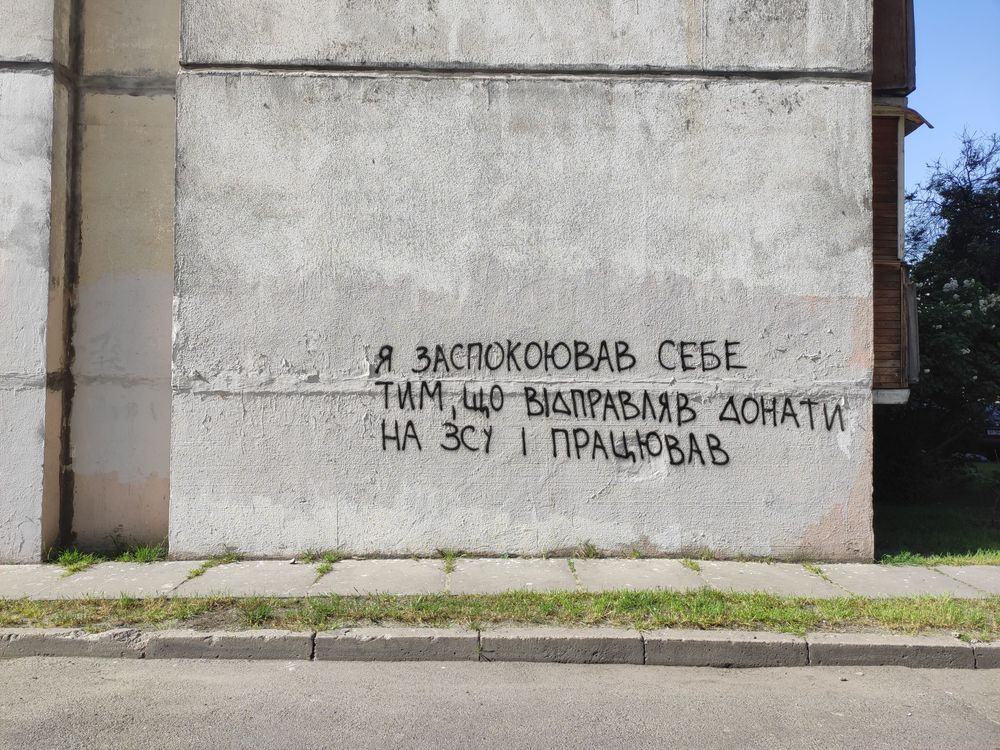 Я ЗАСПОКОЮВАВ СЕБЕ
ТИМ, ЩО ВІДПРАВЛЯВ ДОНАТИ
НА ЗСУ І ПРАЦЮВАВ